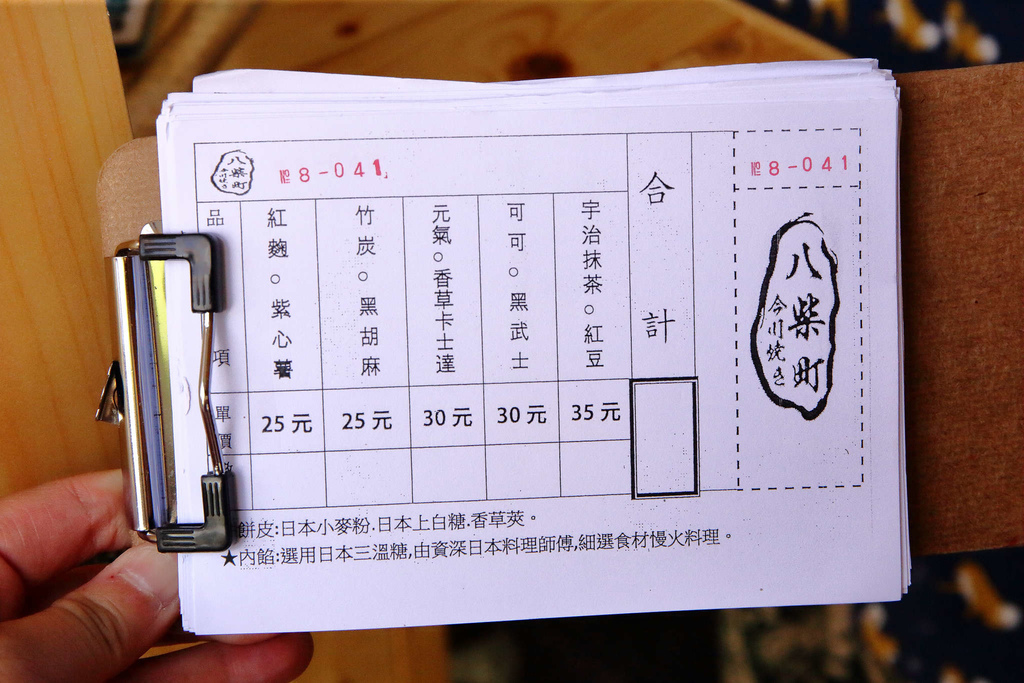 八柴町
今川焼き
№ 8-041
合計
№ 8-041
品項
紅麴。紫心薯
竹炭。黑胡麻
元氣。香草卡士達
可可。黑武士
宇治抹茶。紅豆
八柴町
今川焼き
單價
25元
25元
30元
30元
35元
餅皮:日本小麥粉.日本上白糖.香草莢。
★內餡:選用日本三溫糖,由資深日本料理師傅,細選食材慢火料理。